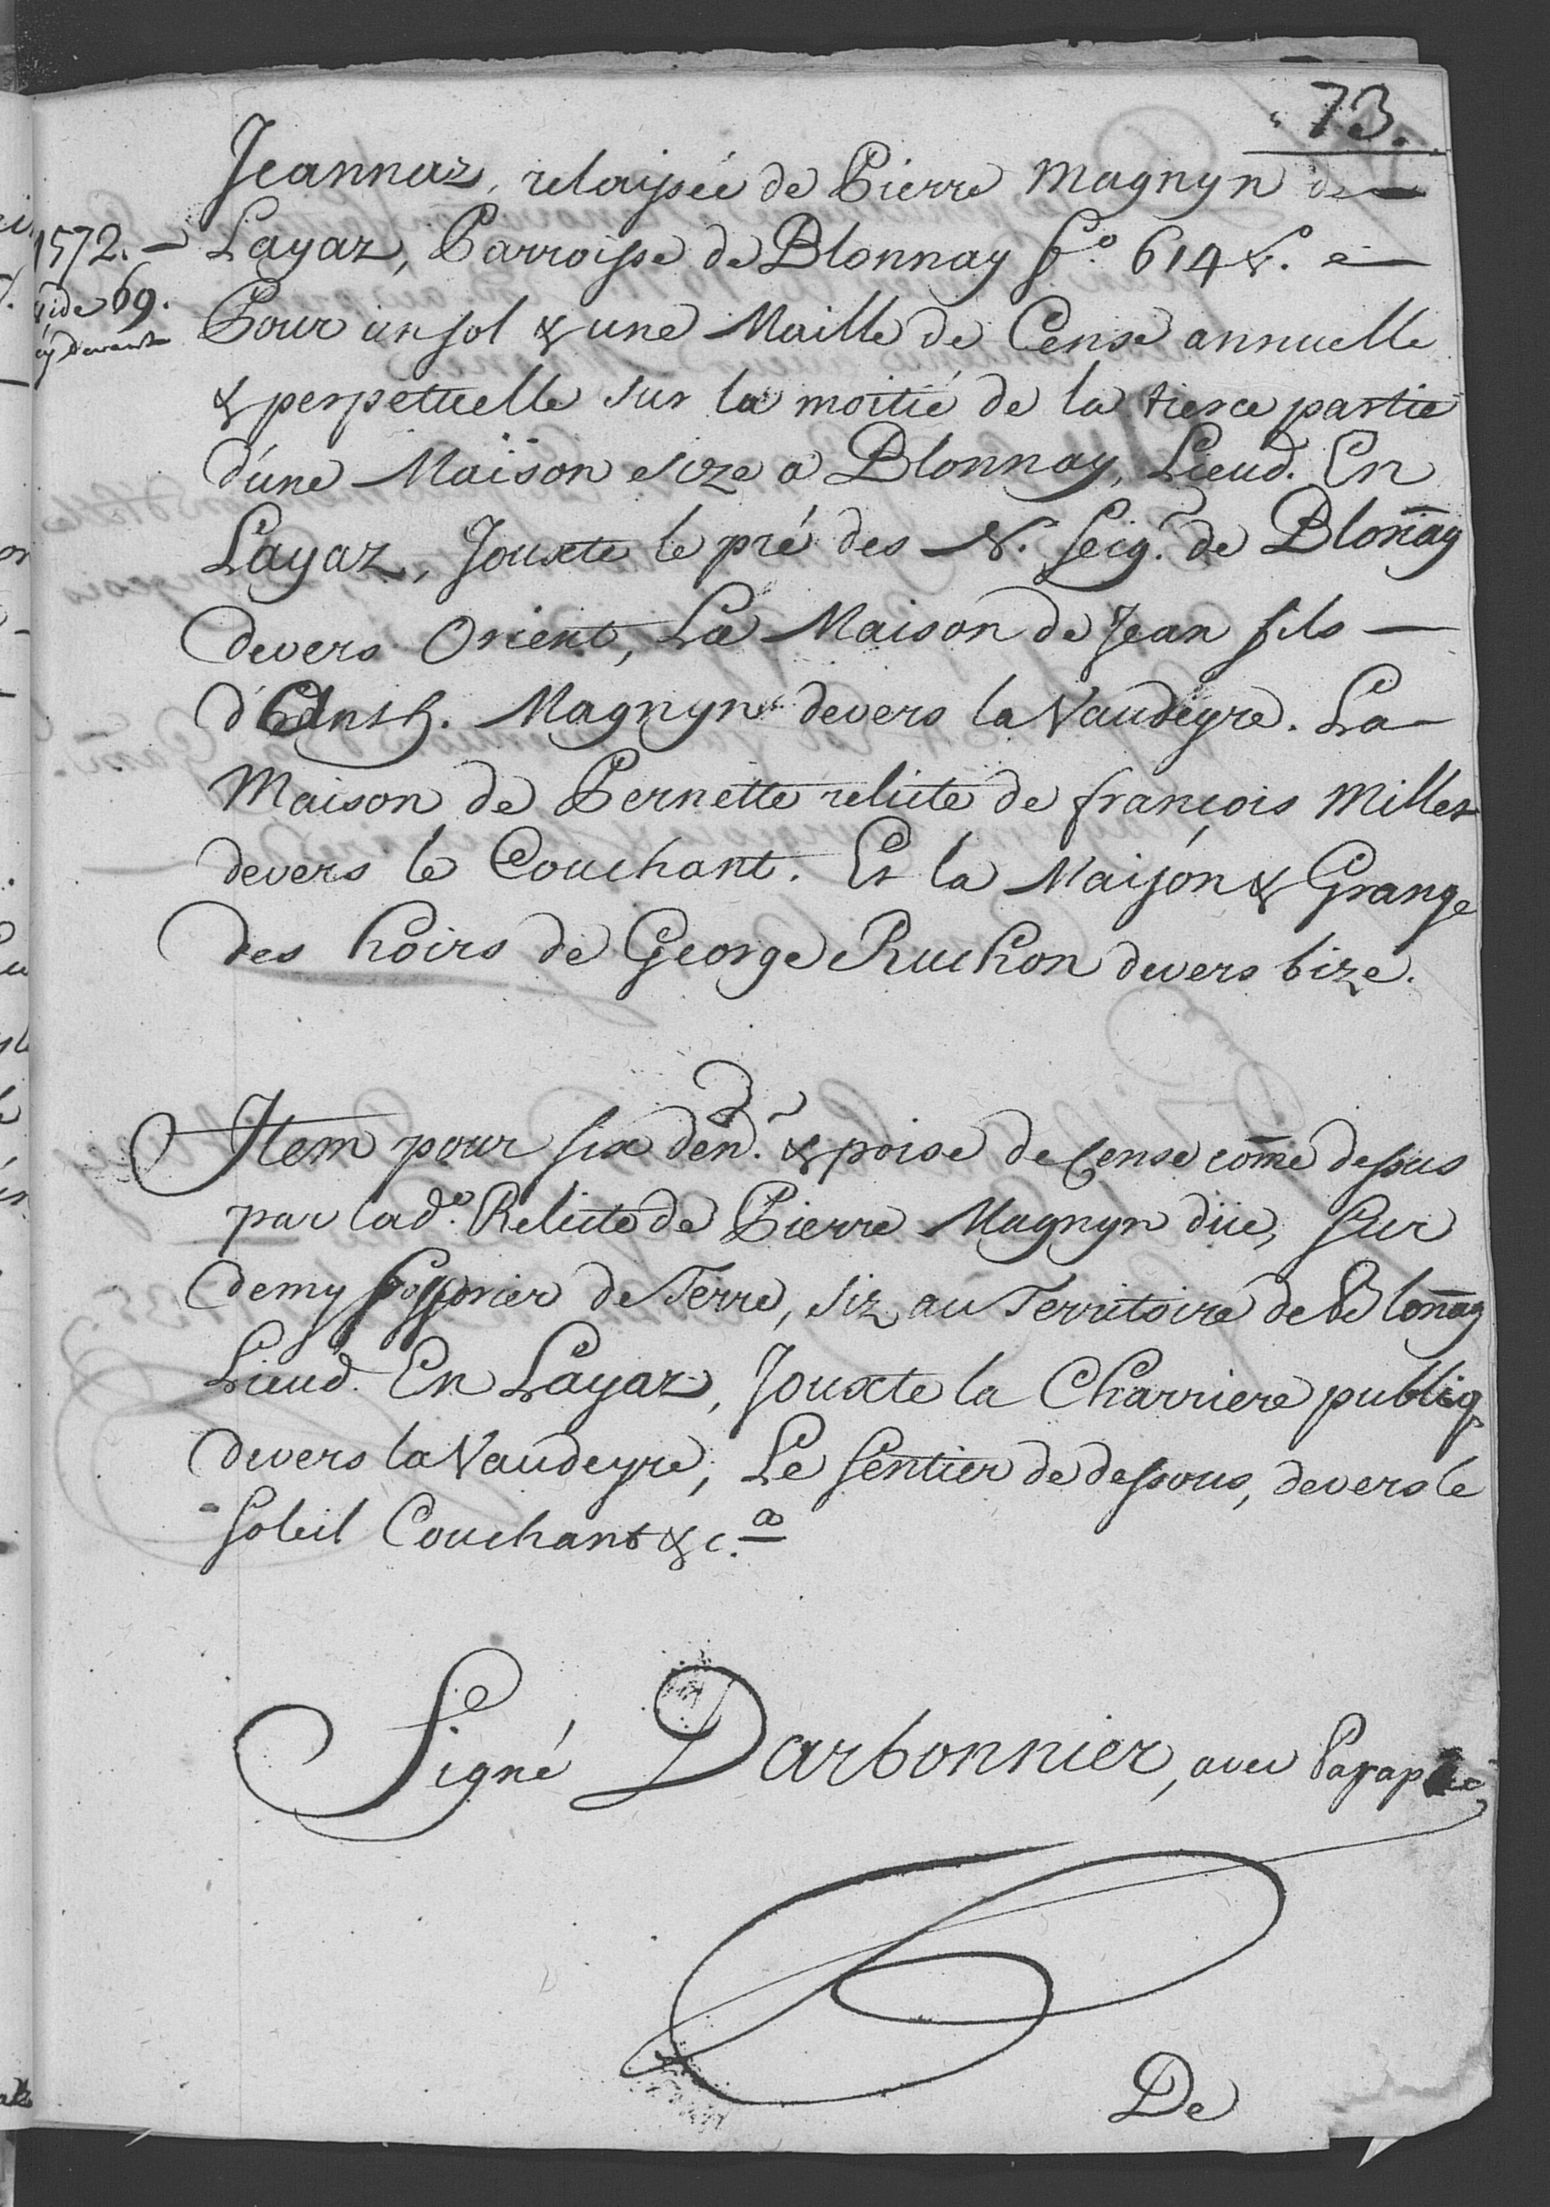 73.
Jeannaz, relaissée de Pierre Magnyn de —
1572. — Layaz, Parroisse de Blonnay f.º 614 &.
vide 69. Pour un sol & une Maille de Cense annuelle
cy devant
& perpetuelle sur la moitié de la tierce partie
d'une Maison size a Blonnay, Lieud. En
Layaz, Jouxte le pré des N. Seig.rs de Blonay
devers Orient, La Maison de Jean fils —
d'Anth. Magnyn devers la Vaudeyre. La —
Maison de Pernette relicte de françois Millet
devers le Couchant. Et la Maison & Grange
des hoirs de George Ruchon devers bize.
Item pour six den.rs & poise de Cense come dessus
par lad.e Relicte de Pierre Magnyn düe, sur
demy fossorier de Terre, siz au Territoire de Blonay
Lieud. En Layaz, Jouxte la Charriere publiq
devers la Vaudeyre, Le Sentier de dessous, devers le
Soleil Couchant & c.a
Signé Darbonnier, avec Paraphe
De